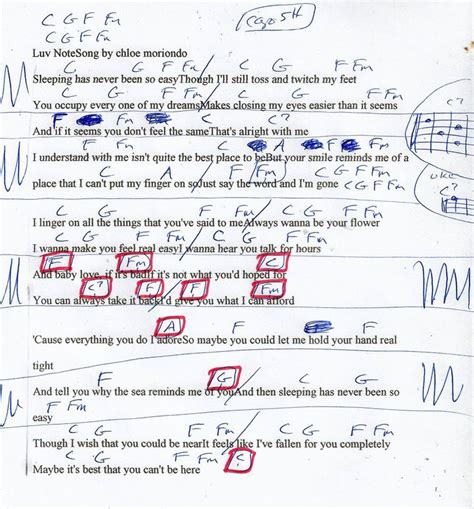 C G F Fm
C G F Fm
Capo 5th
Luv NoteSong by chloe moriondo
C G F Fm C G F Fm
Sleeping has never been so easyThough I'll still toss and twitch my feet
C G F Fm C G F Fm
You occupy every one of my dreamsMakes closing my eyes easier than it seems
C?
F Fm C C?
And if it seems you don't feel the sameThat's alright with me
F Fm C A F Fm
I understand with me isn't quite the best place to beBut your smile reminds me of a
uke
C A F Fm
place that I can't put my finger on soJust say the word and I'm gone C G F F Fm
C G F Fm C G F Fm
I linger on all the things that you've said to meAlways wanna be your flower
C G F Fm C G F Fm
I wanna make you feel real easyI wanna hear you talk for hours
F Fm C
And baby love, if it's badIf it's not what you'd hoped for
C? F F Fm
You can always take it backI'd give you what I can afford
A F
'Cause everything you do I adoreSo maybe you could let me hold your hand real
tight
F G C G
And tell you why the sea reminds me of youAnd then sleeping has never been so
F Fm
easy
C G F Fm C G F Fm
Though I wish that you could be nearIt feels like I've fallen for you completely
C G F Fm C
Maybe it's best that you can't be here